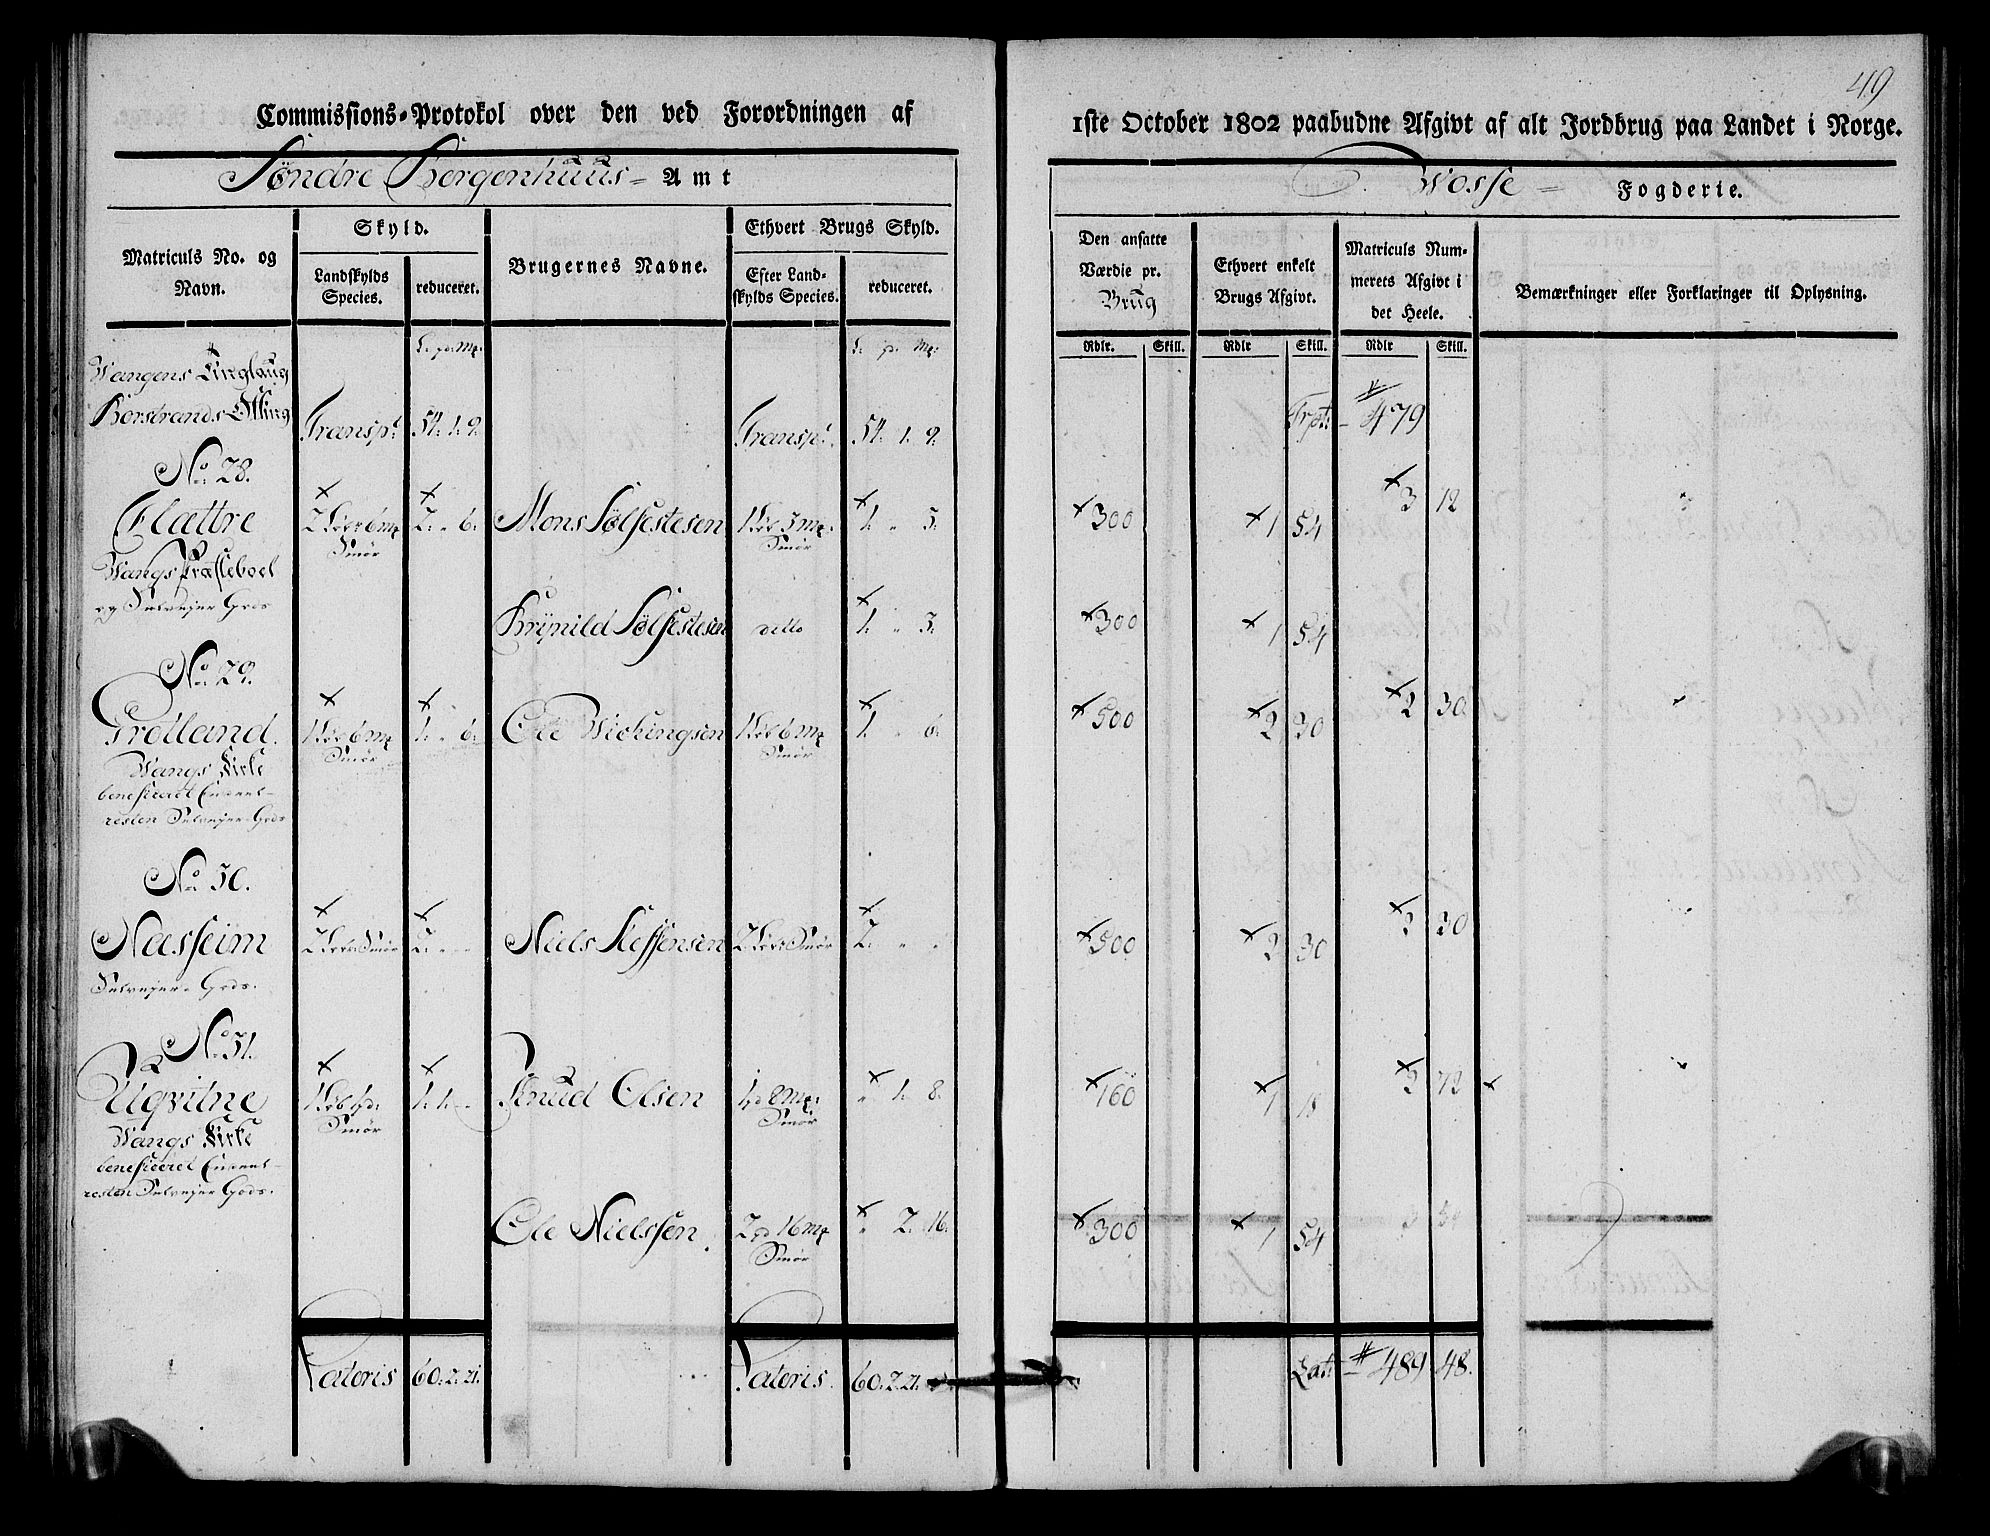 49
Commissions-Protokol over den ved Forordningen af
1ste October 1802 paabudne Afgivt af alt Jordbrug paa Landet i Norge.
Søndre Bergenhuus - Amt
Wosse - Fogderie.
Matriculs No. og Navn.
Skyld.
Landskylds Species.
reduceret.
Brugernes Navne.
Ethvert Brugs Skyld.
Efter Landskylds Species.
reduceret.
Den ansatte Værdie pr. Brug
Ethvert enkelt Brugs Afgivt.
Matriculs Nummerets Afgivt i det Heele.
Bemærkninger eller Forklaringer til Oplysning.
Rdlr. Skill. Rdlr Skill. Rdlr Skill.
Wangens Tinglaug
Borstrands Otting Transpt. 54. 1. 9. Transpt. 54. 1. 9. Trpt: 479
No. 28.
Flættre 2 Løb 6 mk Smør 2. " 6. Mons Sølfestesen 1 Løb 3 mk. Smør 1. " 3. 300 1 54 3 12
Wangs Præsteboel
og Selvejer Gods
Brynild Sølfestesen ditto 1. " 3. 300 1 54
No. 29.
Grotland. 1 Løb 6 mk Smør 1. " 6. Ole Wickingsen 1 Løb 6 mk Smør 1. " 6. 500 2 30 2 30
Wangs Kirke
beneficeret
resten Selvejer Gods
No. 30.
Næsheim 2 Løber Smør 2. " " Niels Steffensen 2 Løber Smør 2. " " 500 2 30 2 30
Selvejer Gods.
No. 31.
Uqvitne 1 Løb 1 pd: Smør 1. 1. " Knud Olsen 1 pd 8 mk: Smør " 1. 8. 160 1 18 2 72
Wangs Kirke
beneficeret
resten Selvejer Gods.
Ole Nielssen. 2 pd 16 mk Smør " 2. 16. 300 1 54
Lateris 60. 2. 21. Lateris. 60. 2. 21. Lat: 489 48.